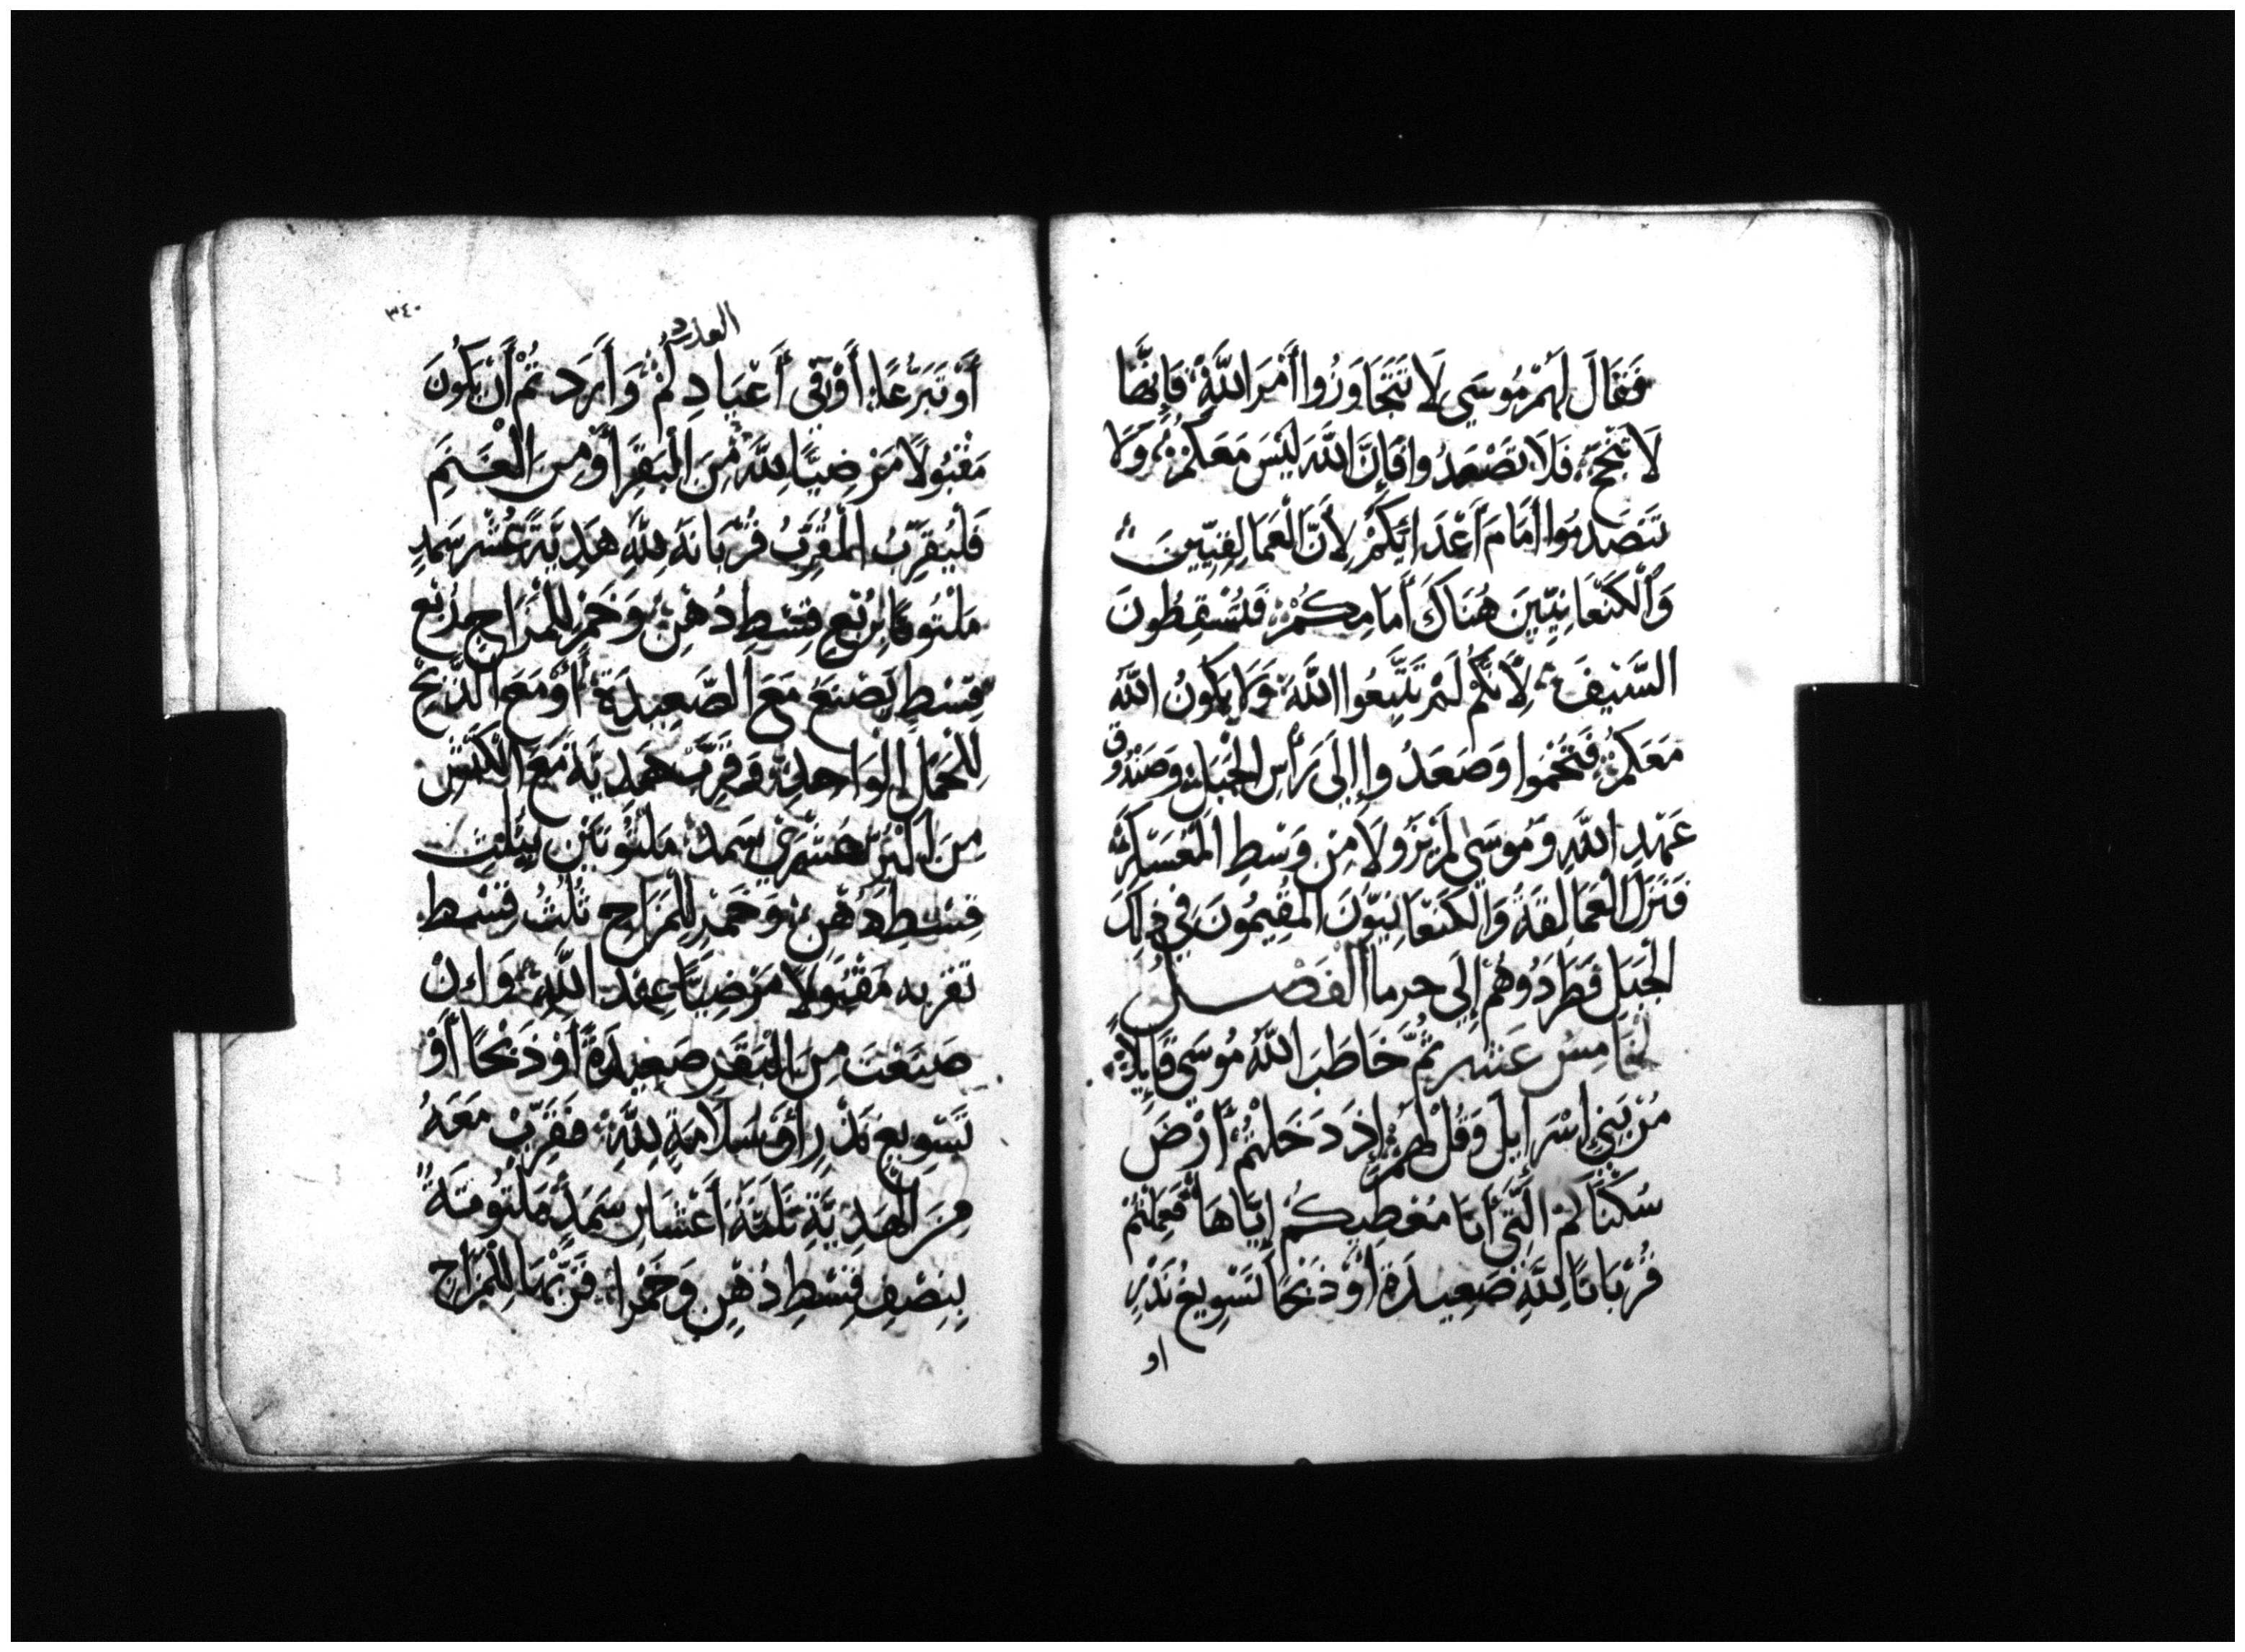 فَقَالَ لَهُمْ مُوسَي لَا تَتَجَاوَزُوا أَمْرَ اللَّهِ فَإِنَّهَا
لَا تَنْجَحُ فَلَا تَصْعَدُوا فَإِنَّ اللَّهَ لَيْسَ مَعَكُمْ وَلَا
تَنْصَدِمُوا أَمَامَ أَعْدَائِكُمْ لِأَنَّ الْعَمَالِقِيِّينَ
وَالْكَنْعَانِيِّينَ هُنَاكَ أَمَامَكُمْ فَتُسْقِطُونَ
السَّيْفَ لِأَنَّكُمْ لَمْ تَتَّبِعُوا اللَّهَ وَلَا يَكُونُ اللَّهُ
مَعَكُمْ فَتَحَمُوا وَصَعَدُوا إِلَى رَأْسِ الْجَبَلِ وَصَنْدُوق
عَهْدِ اللَّهِ وَمُوسَى لَمْ يَزُولَا مِنْ وَسْطِ الْمُعَسْكَرِ
فَنَزَلَ الْعَمَالِقَةُ وَالْكَنْعَانِيُّونَ الْمُقِيمُونَ فِي ذَلِكَ
الْجَبَلِ فَطَرَدُوهُمْ إِلَى حرما الْفَصْلُ
الْخَامِسُ عَشَر ثُمَّ خَاطَبَ اللَّهُ مُوسَى قَايِلًا
مُرْ بَنِي اِسْرَايِلَ وَقُلْ لَهُمْ إِذَ دَخَلْتُمْ أَرْضَ
سُكْنَاكُمْ الَّتِي أَنَا مُعْطِيكُمْ إِيَّاهَا فَعَمِلْتُمْ
قُرْبَانًا لِلَّهِ صَعِيدَةً أَوْ ذَبْحًا لِتَسْوِيغِ نَذْرٍ
او
٣٤٠
العدد
أَوْ تَبَرُّعًا أَوْ فِي أَعْيَادِكُمْ وَأَرَدتُمْ أَنْ يَكُونَ
مَقْبُولًا مَرْضِيًّا لِلَّهِ مِنَ الْبَقَرِ أَوْ مِنَ الْغَنَمِ
فَلْيُقَرِّبُ الْمُقَرِّبُ قُرْبَانَهُ لِلَّهِ هَدِيَّةً عُشْرَ سَمِدٍ
مَلْتُوتًا بِرُبْعِ قِسْطِ دُهْنٍ وَخَمْرٍ لِلْمَزَاجِ رُبْع
قِسْطٍ يَصْنَعُ مَعَ الصَّعِيدَةِ أَوْ مَعَ الذَّبْحِ
لِلْحَمَلِ الْوَاحِدِ وَقَرِّبْ هَدِيَّةً مَعَ الْكَبْشِ
مِنَ الْبُرِّ عُشْرَيْ سَمِدٍ مَلْتُوتَيْنِ بِثُلْثِ
قِسْطِ دُهْنٍ وَخَمْرٍ لِلْمَزَاجِ ثُلُثُ قِسْطٍ
تقربه مَقْبُولًا مَرْضِيًّا عِنْدَ اللَّهِ وَإِنْ
صَنَعْتَ مِنَ الْبَقَرِ صَعِيدَةً أَوْ ذَبْحًا أَوْ
تَسْوِيغِ نَذْرٍ أَوْ سَلَامَةٍ لِلَّهِ فَقَرِّبْ مَعَهُ
مِنَ الْهَدِيَّةِ ثَلَثَةَ أَعْشَارِ سَمِدٍ مَلْتُوتَةً
بِنِصْفِ قِسْطِ دُهْنٍ وَخَمْرًا قَرِّبْهَا لِلْمَزَاجِ